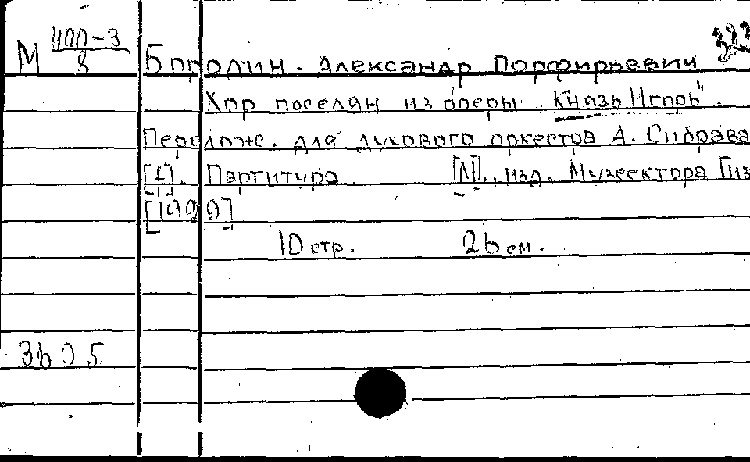 М 400-3/8 Бородин. Александр Порфирьевич
Хор поселян из оперы „Князь Игорь".
Перелож. для духового оркестра А. Сидрава
Партитура [М]. изд. Музсектора Гиз
10 стр. 26 см.
3605